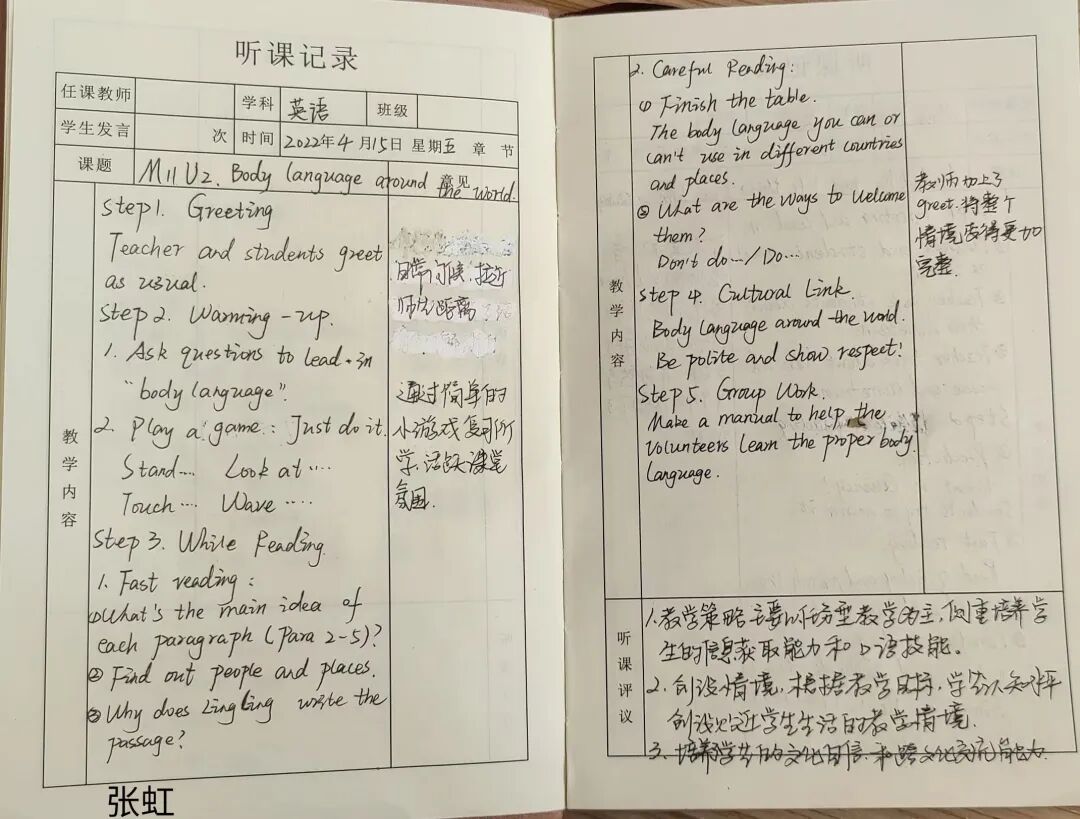 听课记录
任课教师 学科 英语 班级
学生发言 次 时间 2022年4月15日 星期五 章 节
课题 M11 U2. Body language around the world. 意见
教学内容
Step 1. Greeting
Teacher and students greet
as usual.
Step 2. Warming-up.
1. Ask questions to lead-in
"body language".
2. Play a game: Just do it.
Stand... Look at ....
Touch... Wave ....
Step 3. While Reading
1. Fast reading:
①What's the main idea of
each paragraph (Para 2-5)?
② Find out people and places.
③ Why does Lingling write the
passage?
日常问候，拉近
师生距离
通过简单的
小游戏复习所
学，活跃课堂
氛围.
张虹
教学内容
2. Careful Reading:
① Finish the table.
The body language you can or
can't use in different countries
and places.
② What are the ways to welcome
them?
Don't do.../Do...
Step 4. Cultural Link.
Body Language around the world.
Be polite and show respect!
Step 5. Group Work.
Make a manual to help the
volunteers learn the proper body
language.
教师加上了
greet.将整个
情境变得更加
完整.
听课评议
1.教学策略主要以任务型教学为主，侧重培养学
生的信息获取能力和口语技能。
2. 创设情境，根据教学目标，学生认知水平
创设贴近学生生活的教学情境.
3. 培养学生的文化自信和跨文化交流能力.